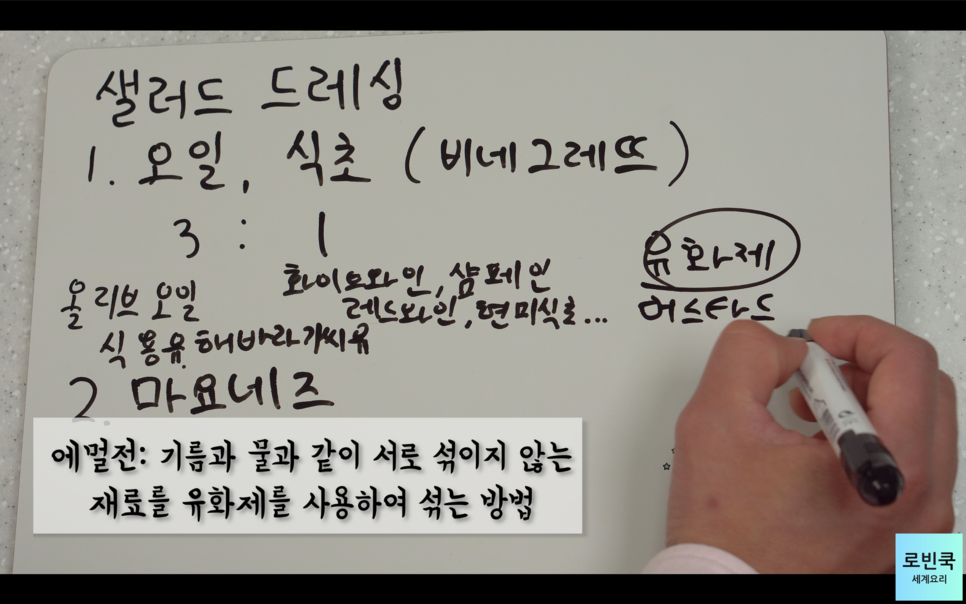 샐러드 드레싱
1. 오일, 식초 (비네그레뜨)
3 : 1
올리브 오일
식용유, 해바라기씨유
화이트와인, 샴페인
레드와인, 현미식초...
유화제
머스타드
2. 마요네즈
에멀전: 기름과 물과 같이 서로 섞이지 않는
재료를 유화제를 사용하여 섞는 방법
로빈쿡
세계요리